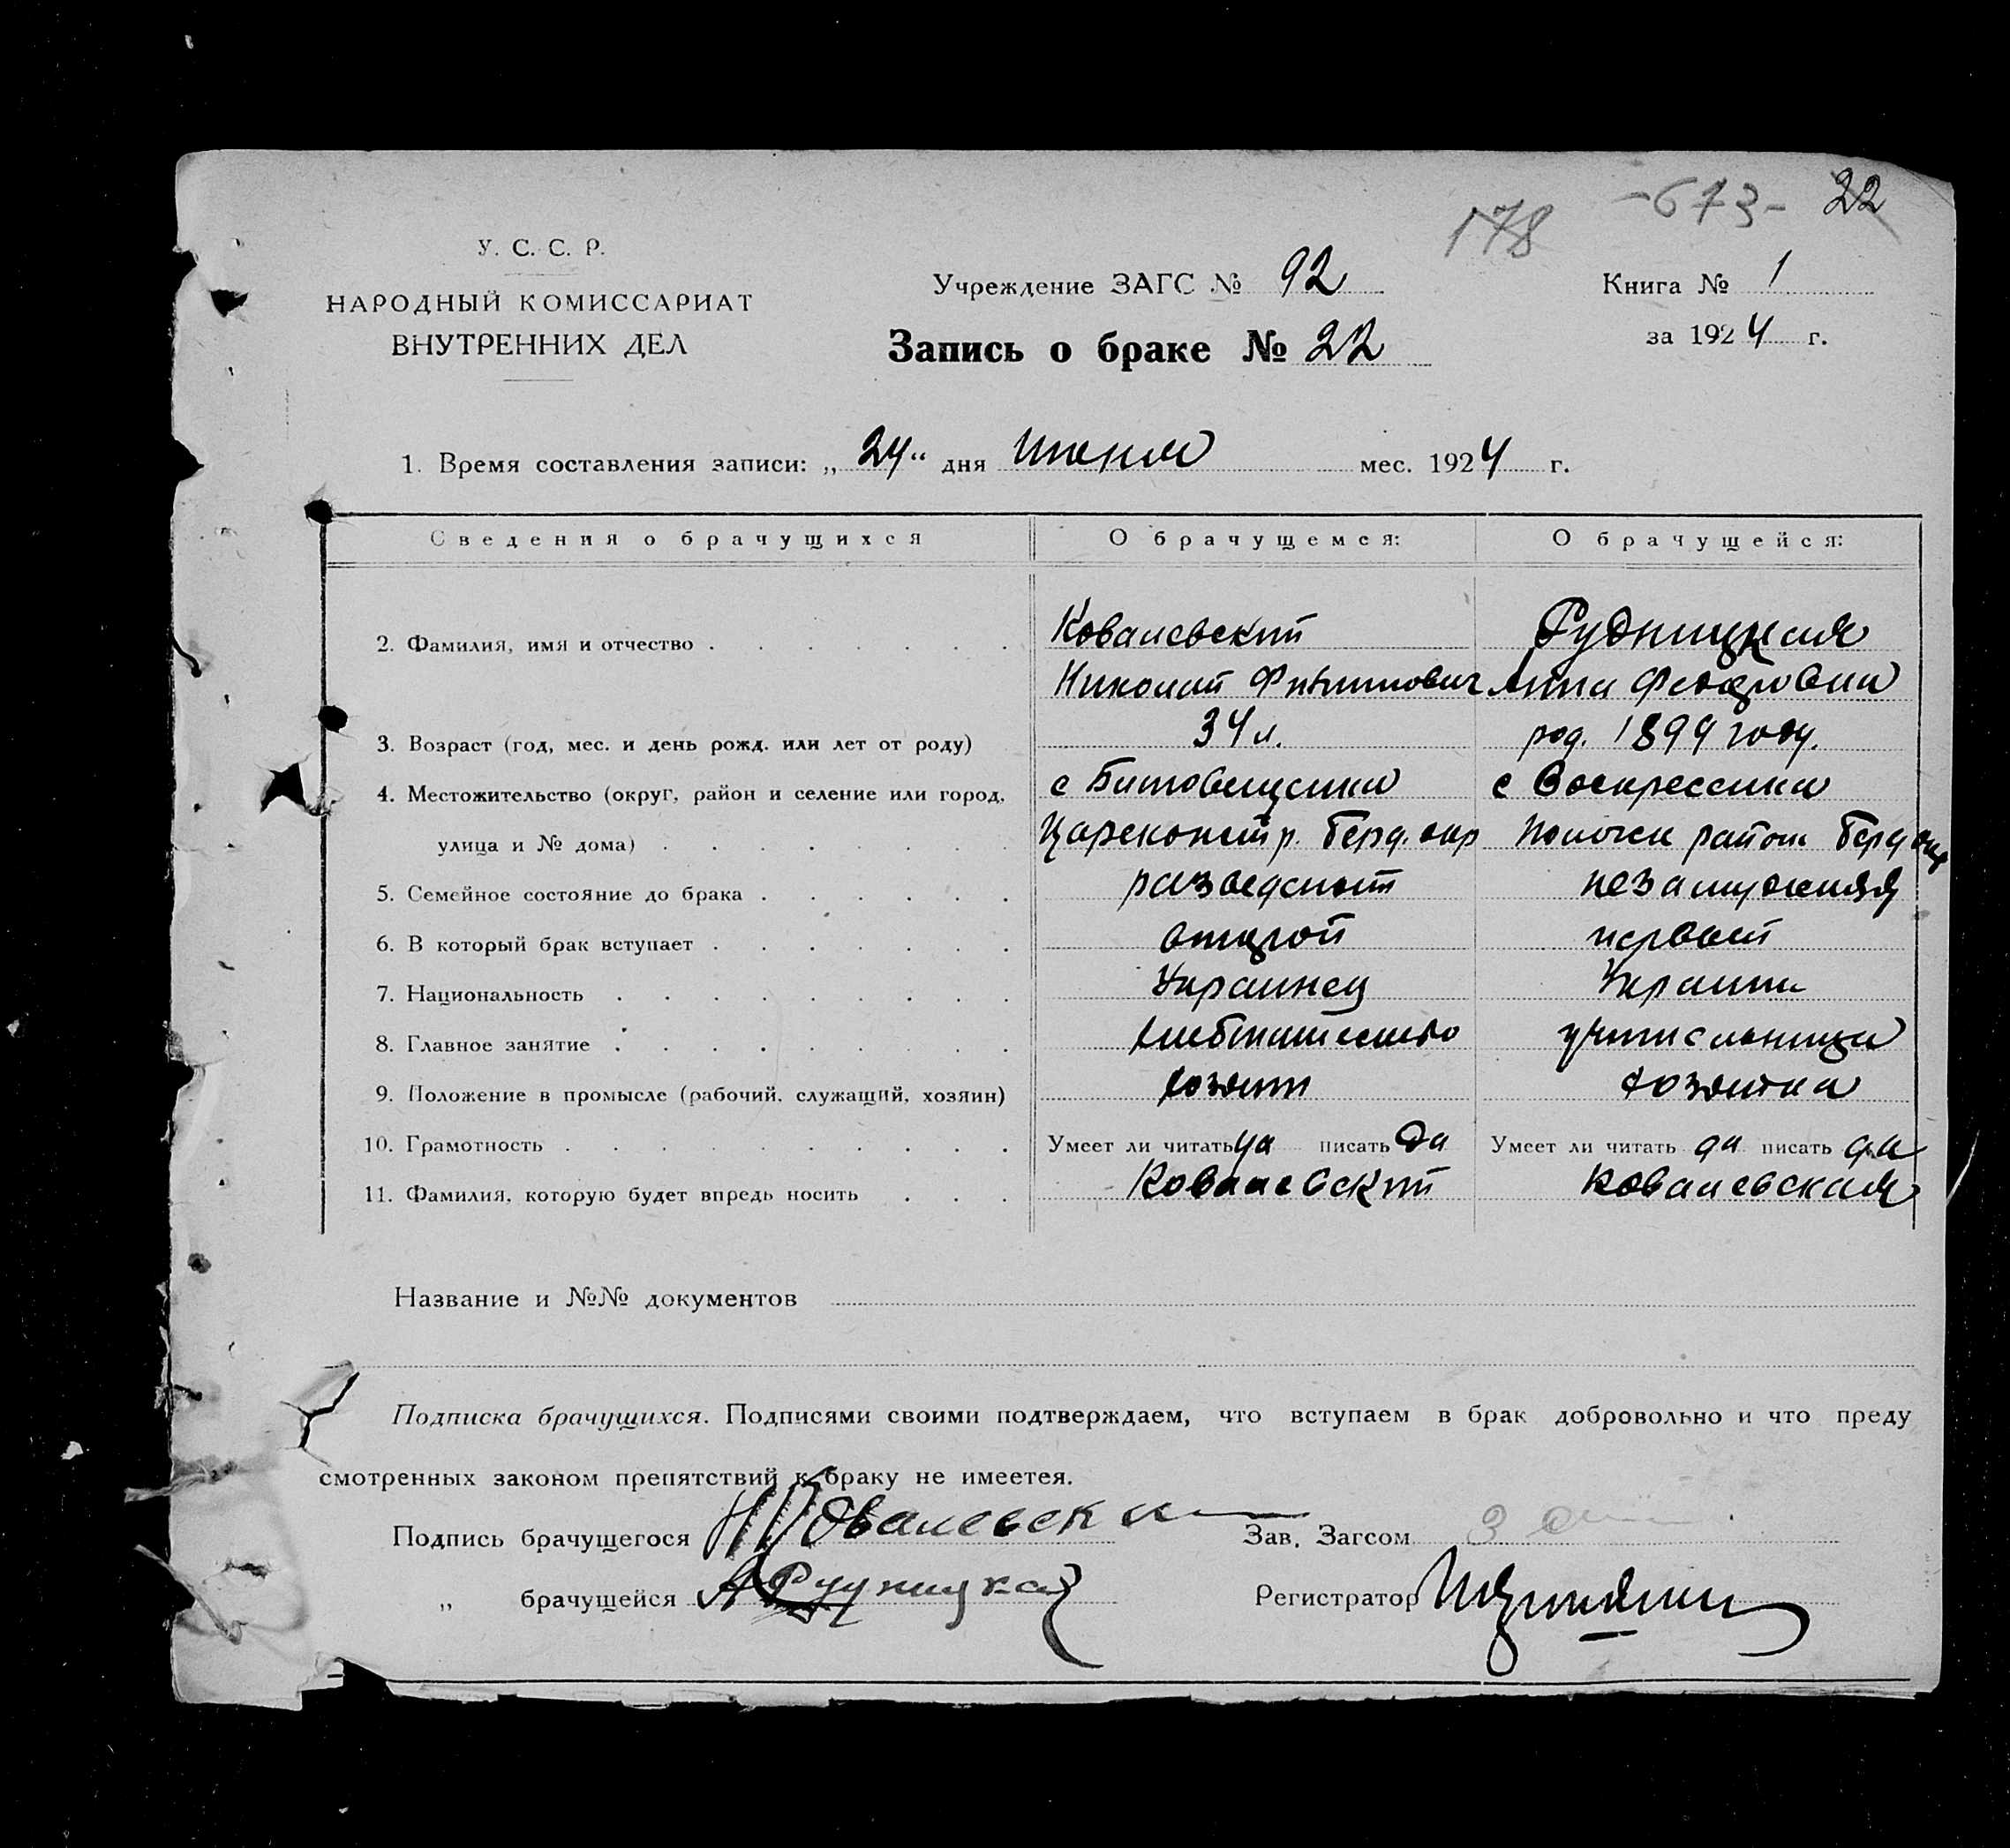 -673- 22
178
У. С. С. Р.
НАРОДНЫЙ КОМИССАРИАТ
ВНУТРЕННИХ ДЕЛ
Учреждение ЗАГС № 92
Запись о браке № 22
Книга № 1
за 1924 г.
1. Время составления записи: „24“ дня мес. 1924 г.
Сведения о брачущихся О брачущемся: О брачущейся:
2. Фамилия, имя и отчество Ковалевский Рудницкая
Николай Анна Федоровна
3. Возраст (год, мес. и день рожд. или лет от роду) 34 л. род. 1899 году.
4. Местожительство (округ, район и селение или город, с с
улица и № дома) р. Берд. окр район Берд окр
5. Семейное состояние до брака разведеный незамужняя
6. В который брак вступает второй первый
7. Национальность Украинец Украин
8. Главное занятие учительница
9. Положение в промысле (рабочий, служащий, хозяин) хозяин хозяйка
10. Грамотность Умеет ли читать да писать да Умеет ли читать да писать да
11. Фамилия, которую будет впредь носить Ковалевский Ковалевская
Название и №№ документов
Подписка брачущихся. Подписями своими подтверждаем, что вступаем в брак добровольно и что преду
смотренных законом препятствий к браку не имеетея.
Подпись брачущегося Зав. Загсом
„ брачущейся А Рудницкая Регистратор